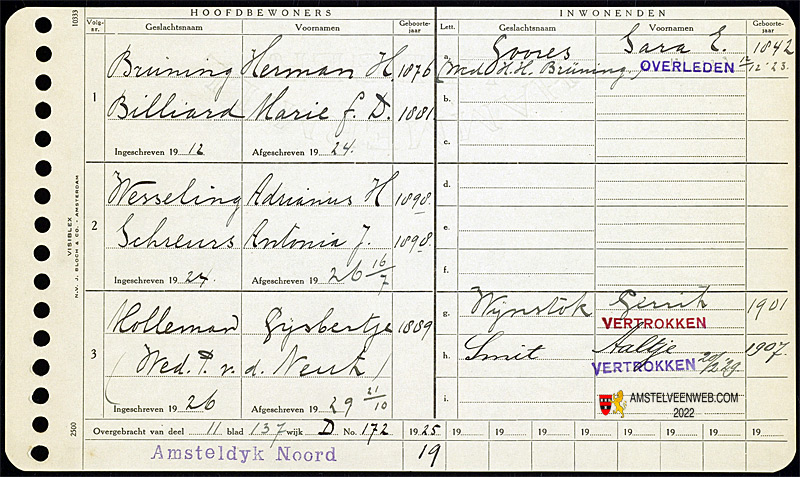 HOOFDBEWONERS INWONENDEN
10333 Volg-nr. Geslachtsnaam Voornamen Geboorte-jaar Lett. Geslachtsnaam Voornamen Geboorte-jaar
1 Brüning Herman H. 1876
Billiard Marie J. D. 1881
Ingeschreven 19 12 Afgeschreven 19 24.
a. Goores Sara E. 1842
(Wed H. H. Brüning.) OVERLEDEN 12/12 '23.
b.
c.
2 Wesseling Adrianus H 1898.
Schreurs Antonia J. 1898.
Ingeschreven 19 24. Afgeschreven 19 26 16/7
d.
e.
f.
3 Holleman Gijsbertje 1889
(Wed. P. v. d. Neut)
Ingeschreven 19 26 Afgeschreven 19 29 21/10
g. Wijnstok Gerrit 1901
VERTROKKEN
h. Smit Aaltje 1907.
VERTROKKEN '29
i.
AMSTELVEENWEB.COM
2022
VISIBLEX
N.V. J. BLOCH & CO. - AMSTERDAM
2500
Overgebracht van deel 11 blad 137 wijk D No. 172 1925 19 19 19 19 19 19 19 19
Amsteldyk Noord 19